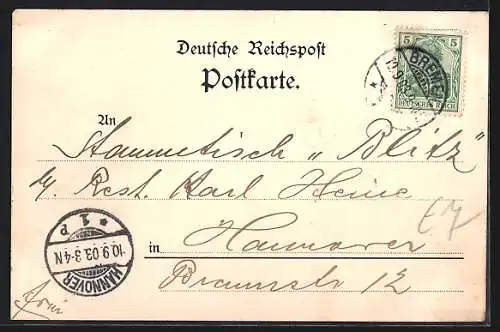 Deutsche Reichspost
Postkarte.
5 5
DEUTSCHES REICH
BREMEN
An
Stammtisch „Blitz“
Rest. Karl Heine
in Hannover
Braunstr 12
HANNOVER
10.9.03.3-4N
* 1 P